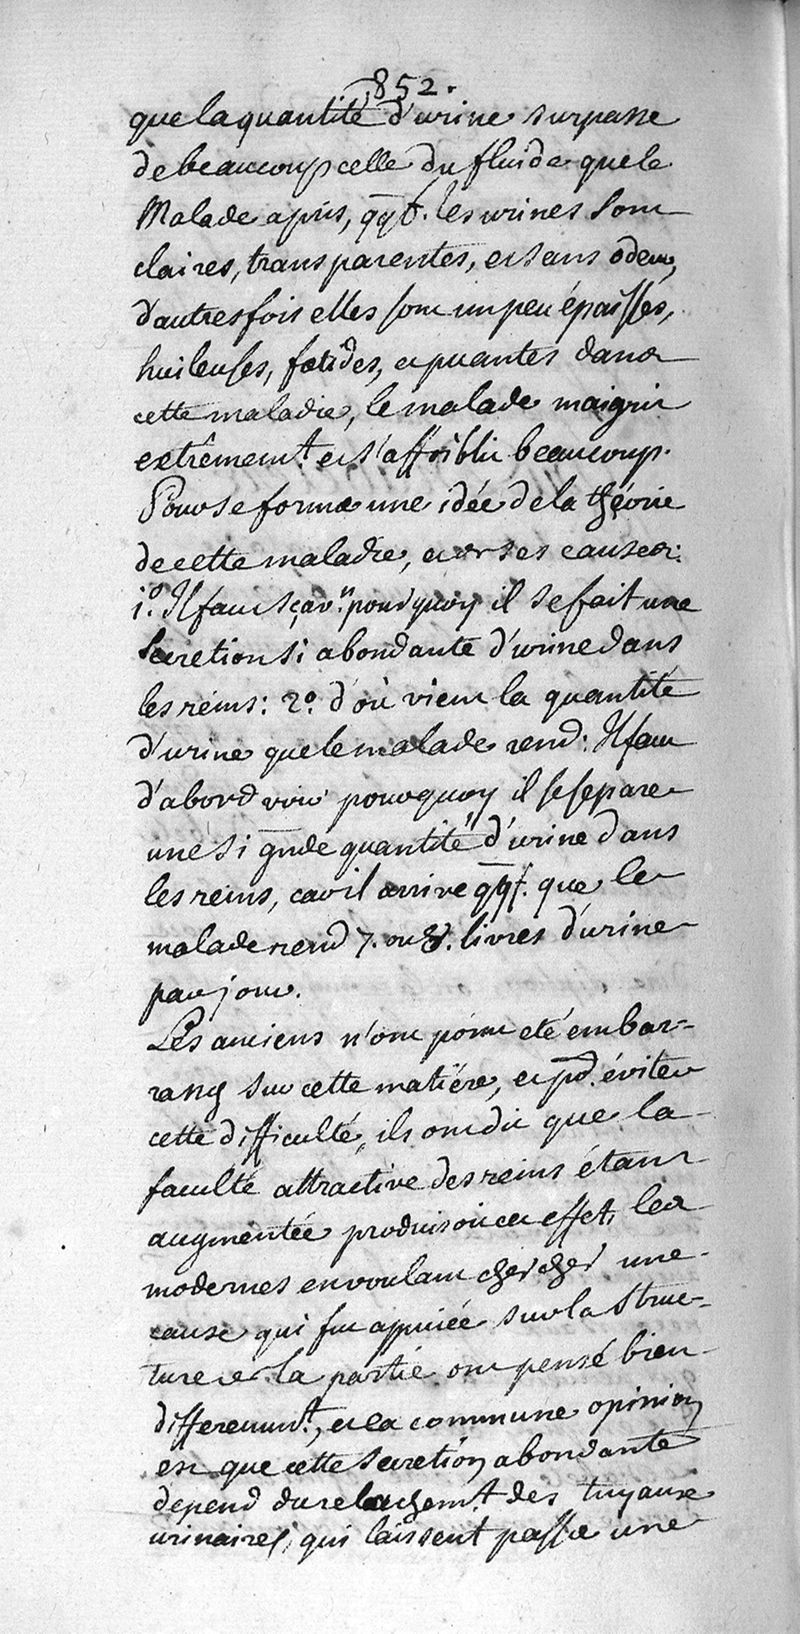 852.
que la quantité d'urine surpasse
de beaucoup celle du fluide que le
Malade a pris, qqf. les urines sont
claires, transparentes, et sans odeur,
d'autres fois elles sont un peu épaisses,
huileuses, fœtides, et puantes dans
cette maladie, le malade maigrit
extrêmemt. et s'affoiblit beaucoup.
Pour se former une idée de la théorie
de cette maladie, et de ses causes:
1º. Il faut sçavr. pourquoy il se fait une
secretion si abondante d'urine dans
les reins: 2º. d'où vient la quantité
d'urine que le malade rend: Il faut
d'abord voir pourquoy il se separe
une si gnde quantité d'urine dans
les reins, car il arrive qqf. que le
malade rend 7. ou 8. livres d'urine
par jour.
Les anciens n'ont point eté embar-
rassés sur cette matiére, et pr. éviter
cette difficulté, ils ont dit que la
faculté attractive des reins étant
augmentée produisoit cet effet, les
modernes en voulant chercher une
cause qui fut appuiée sur la struc-
ture de la partie ont pensé bien
differemmt., et la commune opinion
est que cette secretion abondante
depend du relachemt. des tuyaux
urinaires, qui laissent passer une